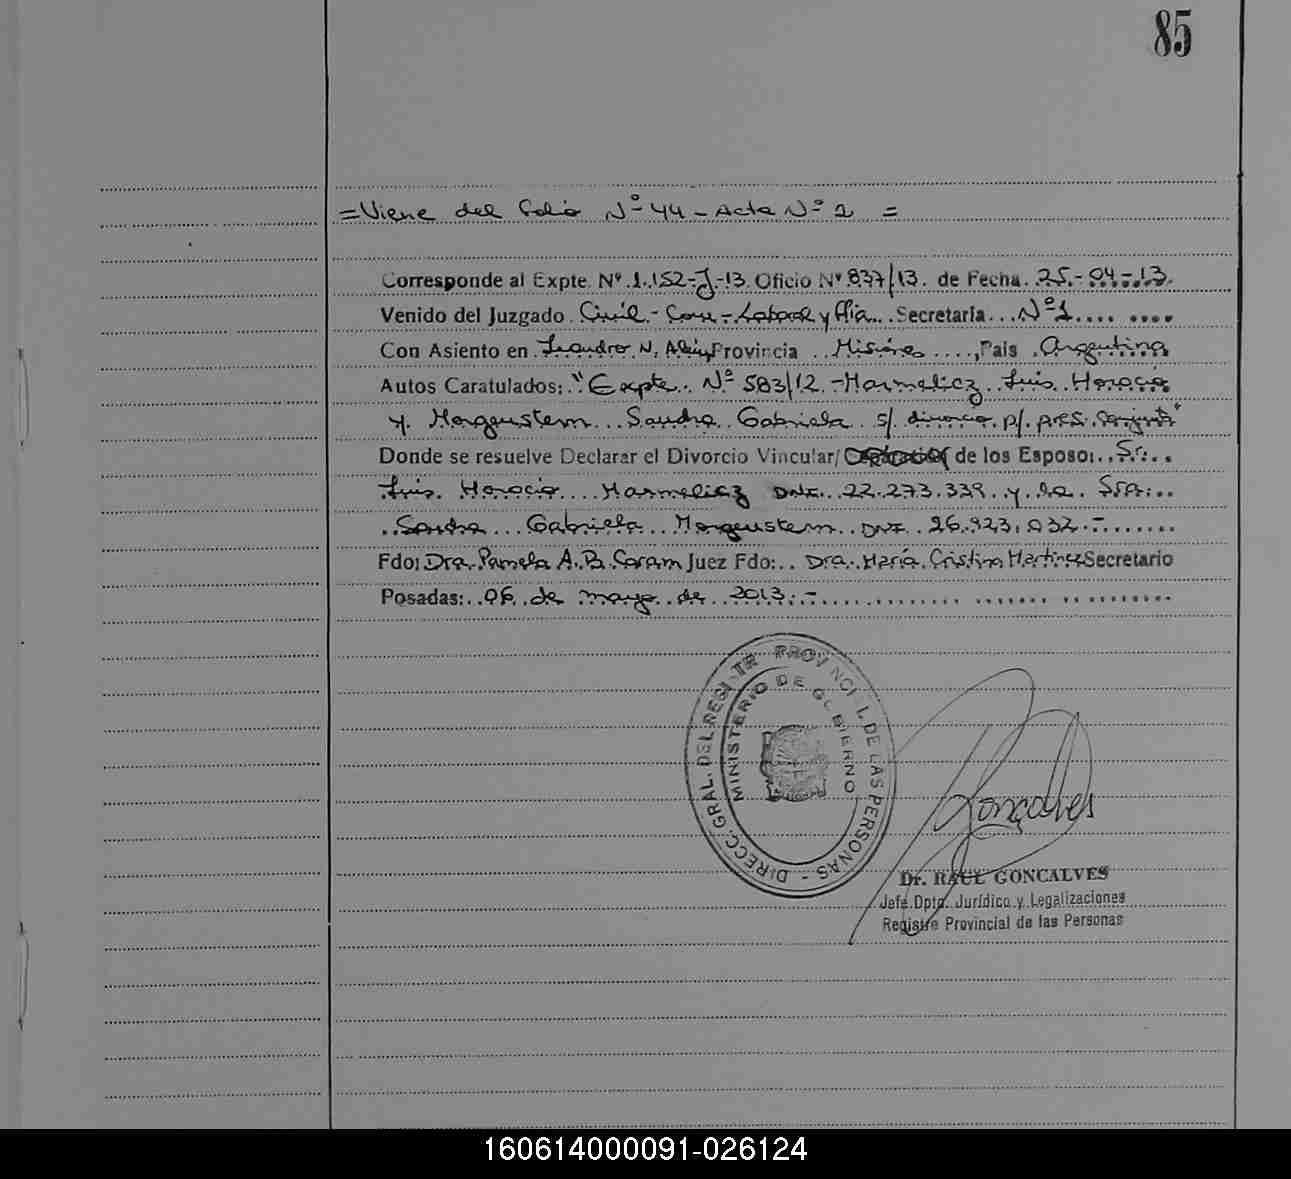 85
= Viene del folio Nº 44 - Acta Nº 2 =
Corresponde al Expte. Nº 1.152-J-13 Oficio Nº 837/13. de Fecha. 25.-04-.13.
Venido del Juzgado Civil - Com - Laboral y Flia. Secretaria Nº 1
Con Asiento en Leandro N. Alem, Provincia Misiones, Pais Argentina
Autos Caratulados: "Expte. Nº 583/12 - Marmelicz Luis Horacio
y Morgenstern Sandra Gabriela s/ divorcio p/ pres. conjunta"
Donde se resuelve Declarar el Divorcio Vincular/ de los Esposo: Sr.
Luis Horacio Marmelicz DNI. 22.273.339 y la Sra.
Sandra Gabriela Morgenstern DNI 26.923.032.-
Fdo: Dra. Pamela A. B. Caram Juez Fdo: Dra. María Cristina Martinez Secretario
Posadas: 06 de mayo de 2013.-
DIRECC. GRAL. DEL REGISTR PROVINCIAL DE LAS PERSONAS -
MINISTERIO DE GOBIERNO
Goncalves
Dr. RAUL GONCALVES
Jefe Dpto. Jurídico y Legalizaciones
Registro Provincial de las Personas
160614000091-026124